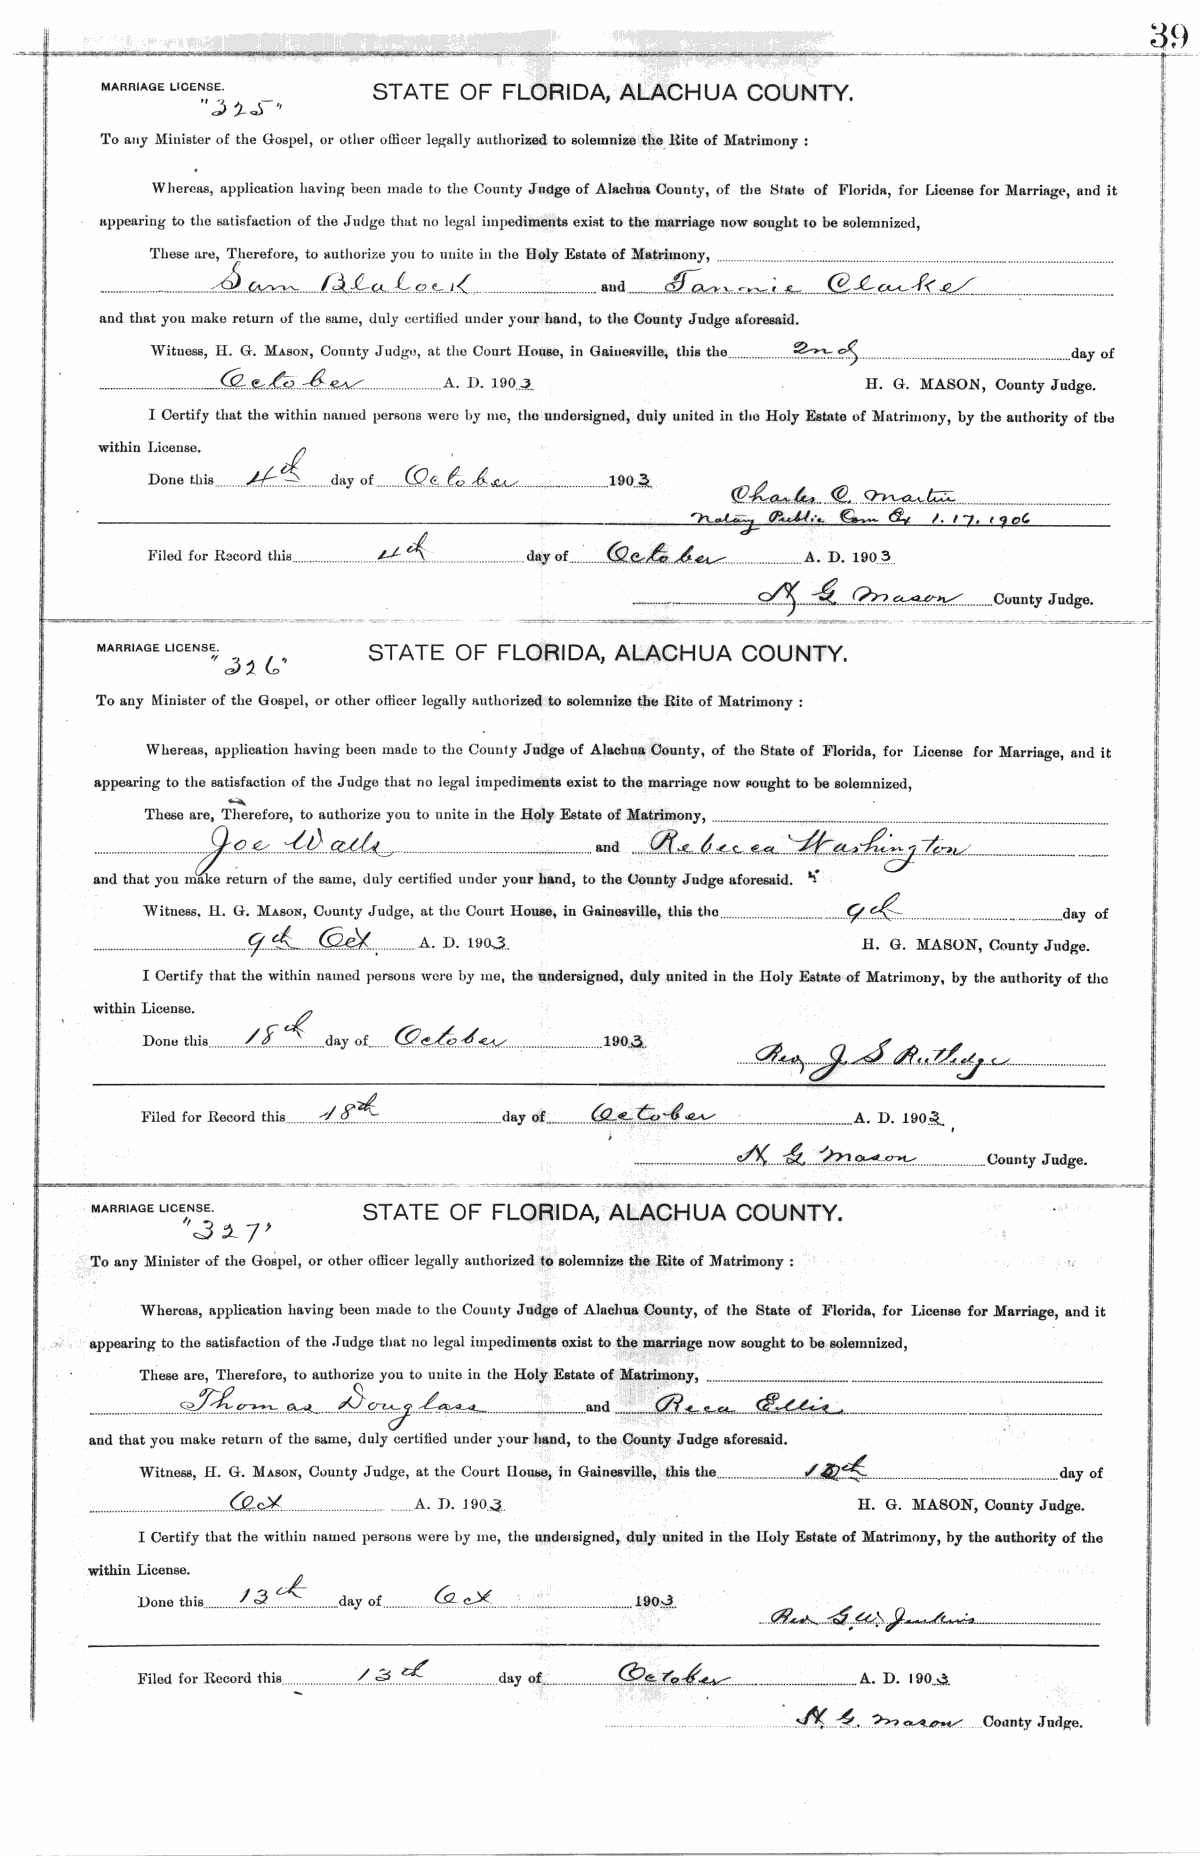 39
MARRIAGE LICENSE. STATE OF FLORIDA, ALACHUA COUNTY.
"325"
To any Minister of the Gospel, or other officer legally authorized to solemnize the Rite of Matrimony :
Whereas, application having been made to the County Judge of Alachua County, of the State of Florida, for License for Marriage, and it
appearing to the satisfaction of the Judge that no legal impediments exist to the marriage now sought to be solemnized,
These are, Therefore, to authorize you to unite in the Holy Estate of Matrimony,
Sam Blalock and Fannie Clarke
and that you make return of the same, duly certified under your hand, to the County Judge aforesaid.
Witness, H. G. MASON, County Judge, at the Court House, in Gainesville, this the 2nd day of
October A. D. 1903 H. G. MASON, County Judge.
I Certify that the within named persons were by me, the undersigned, duly united in the Holy Estate of Matrimony, by the authority of the
within License.
Done this 4th day of October 1903
Charles C. Martin
Notary Public Com Ex 1.17.1906
Filed for Record this 4th day of October A. D. 1903
H G Mason County Judge.
MARRIAGE LICENSE. STATE OF FLORIDA, ALACHUA COUNTY.
"326"
To any Minister of the Gospel, or other officer legally authorized to solemnize the Rite of Matrimony :
Whereas, application having been made to the County Judge of Alachua County, of the State of Florida, for License for Marriage, and it
appearing to the satisfaction of the Judge that no legal impediments exist to the marriage now sought to be solemnized,
These are, Therefore, to authorize you to unite in the Holy Estate of Matrimony,
Joe Walls and Rebecca Washington
and that you make return of the same, duly certified under your hand, to the County Judge aforesaid.
Witness, H. G. MASON, County Judge, at the Court House, in Gainesville, this the 9th day of
9th Oct A. D. 1903 H. G. MASON, County Judge.
I Certify that the within named persons were by me, the undersigned, duly united in the Holy Estate of Matrimony, by the authority of the
within License.
Done this 18th day of October 1903
Rev J. S Rutledge
Filed for Record this 18th day of October A. D. 1903
H. G Mason County Judge.
MARRIAGE LICENSE. STATE OF FLORIDA, ALACHUA COUNTY.
"327"
To any Minister of the Gospel, or other officer legally authorized to solemnize the Rite of Matrimony :
Whereas, application having been made to the County Judge of Alachua County, of the State of Florida, for License for Marriage, and it
appearing to the satisfaction of the Judge that no legal impediments exist to the marriage now sought to be solemnized,
These are, Therefore, to authorize you to unite in the Holy Estate of Matrimony,
Thomas Douglass and Reca Ellis
and that you make return of the same, duly certified under your hand, to the County Judge aforesaid.
Witness, H. G. MASON, County Judge, at the Court House, in Gainesville, this the day of
Oct A. D. 1903 H. G. MASON, County Judge.
I Certify that the within named persons were by me, the undersigned, duly united in the Holy Estate of Matrimony, by the authority of the
within License.
Done this 13th day of Oct 1903
Rev G. W. Jenkins
Filed for Record this 13th day of October A. D. 1903
H. G. Mason County Judge.